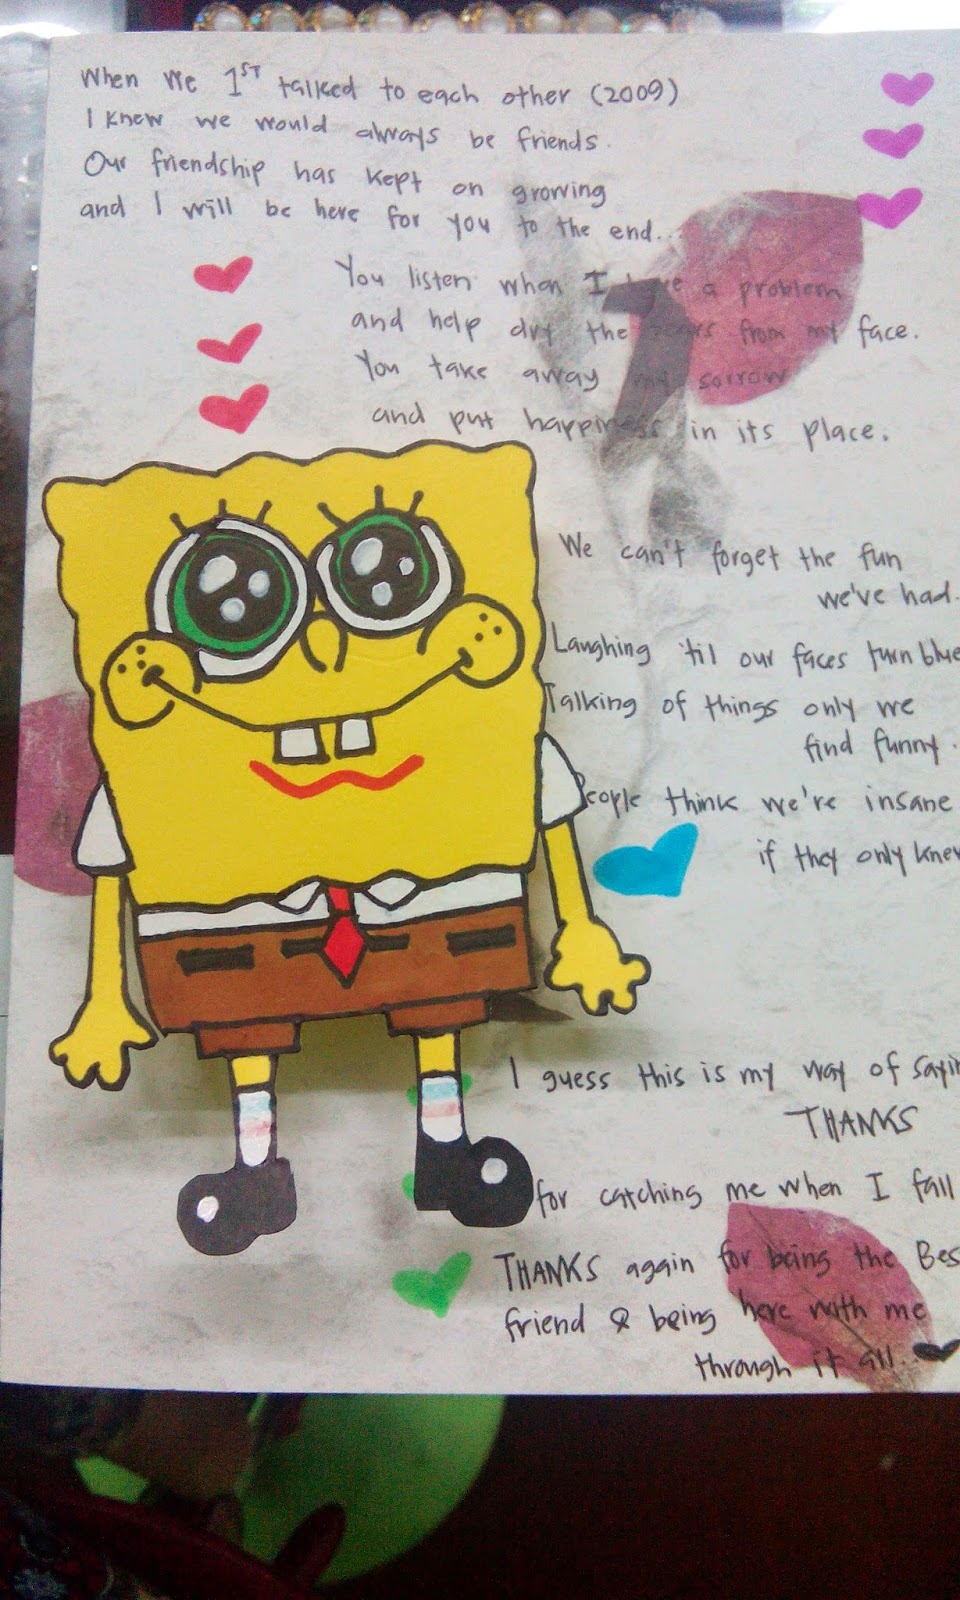 When We 1ST talked to each other (2009)
I knew we would always be friends.
Our friendship has kept on growing
and I will be here for you to the end...
You listen when I have a problem
and help dry the tears from my face.
You take away my sorrow
and put happiness in its place.
We can't forget the fun
we've had.
Laughing 'til our faces turn blue
Talking of things only we
find funny.
People think we're insane
if they only knew
I guess this is my way of sayin
THANKS
for catching me when I fall
THANKS again for being the Bes
friend & being here with me
through it all..